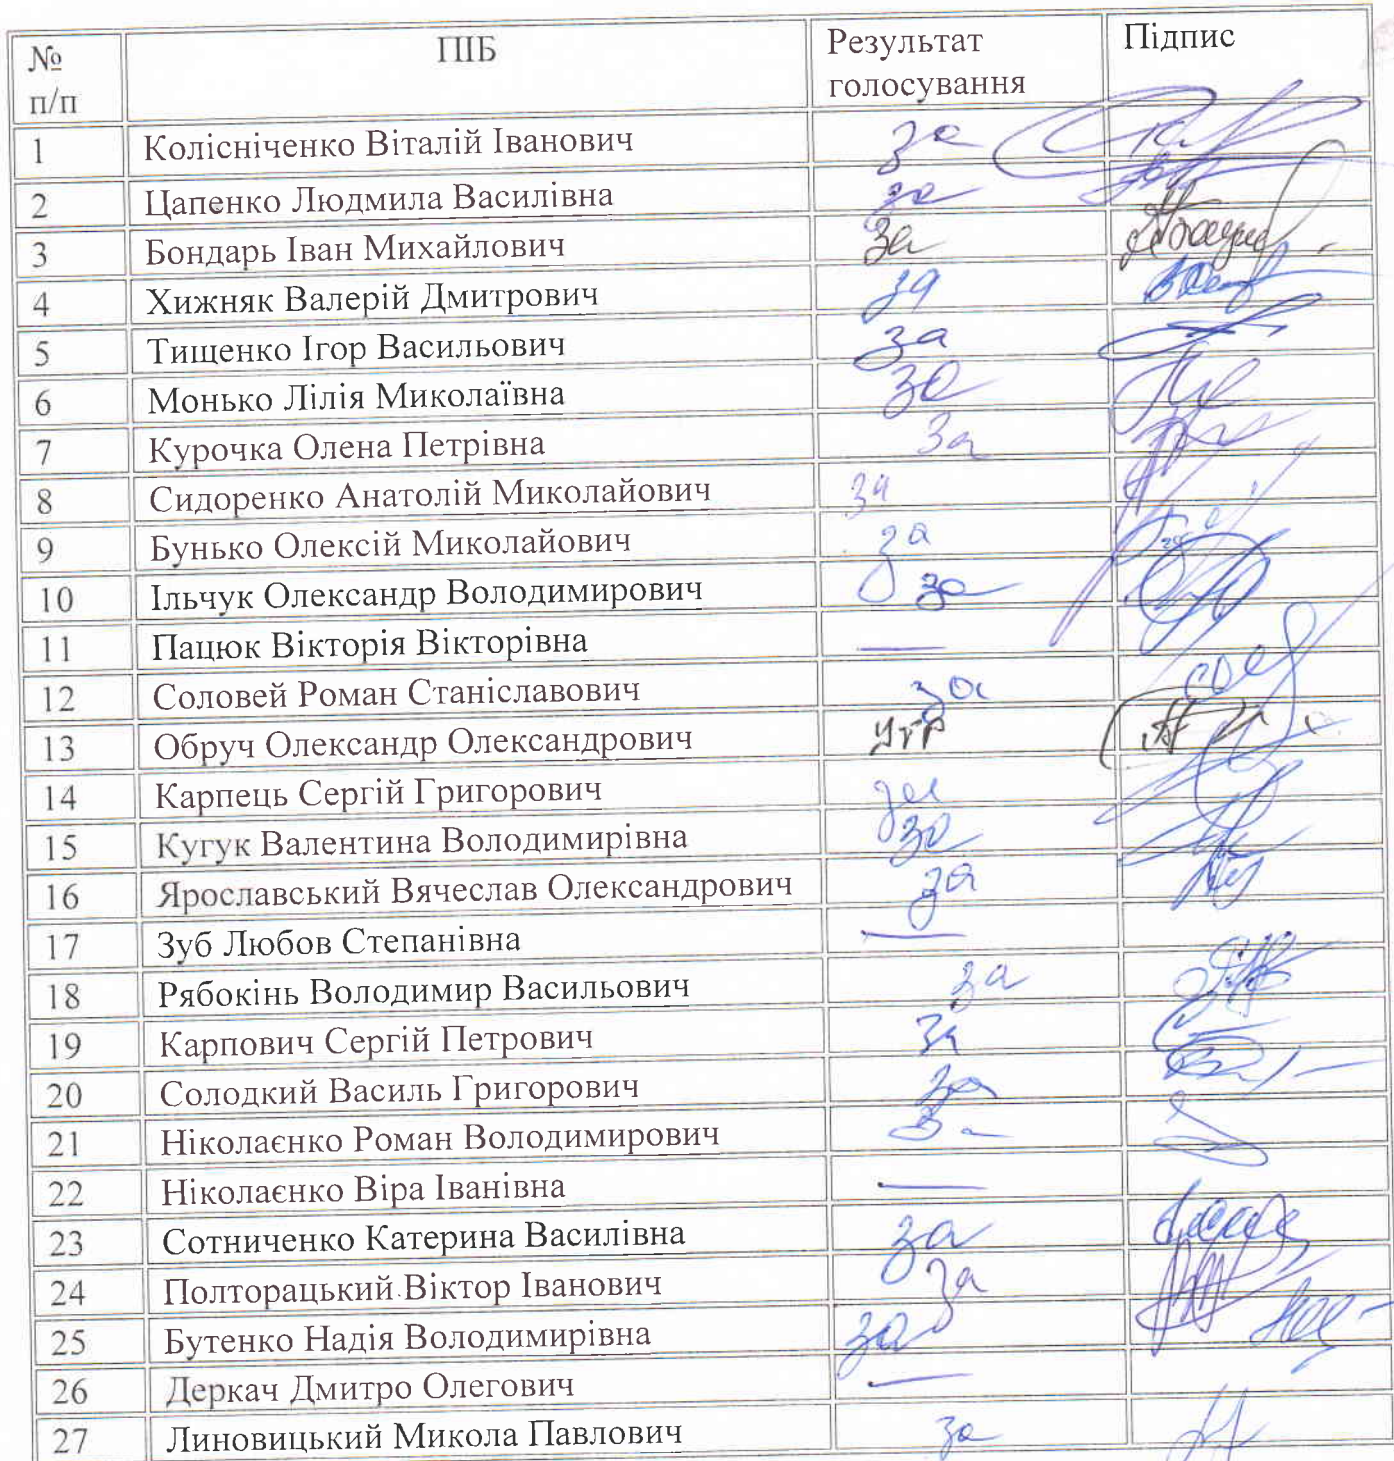 № п/п ПІБ Результат голосування Підпис
1 Колісніченко Віталій Іванович за
2 Цапенко Людмила Василівна за
3 Бондарь Іван Михайлович за
4 Хижняк Валерій Дмитрович за
5 Тищенко Ігор Васильович за
6 Монько Лілія Миколаївна за
7 Курочка Олена Петрівна За
8 Сидоренко Анатолій Миколайович за
9 Бунько Олексій Миколайович за
10 Ільчук Олександр Володимирович за
11 Пацюк Вікторія Вікторівна —
12 Соловей Роман Станіславович за
13 Обруч Олександр Олександрович утр
14 Карпець Сергій Григорович за
15 Кугук Валентина Володимирівна за
16 Ярославський Вячеслав Олександрович за
17 Зуб Любов Степанівна —
18 Рябокінь Володимир Васильович за
19 Карпович Сергій Петрович За
20 Солодкий Василь Григорович за
21 Ніколаєнко Роман Володимирович За
22 Ніколаєнко Віра Іванівна —
23 Сотниченко Катерина Василівна за
24 Полторацький Віктор Іванович за
25 Бутенко Надія Володимирівна за
26 Деркач Дмитро Олегович —
27 Линовицький Микола Павлович за